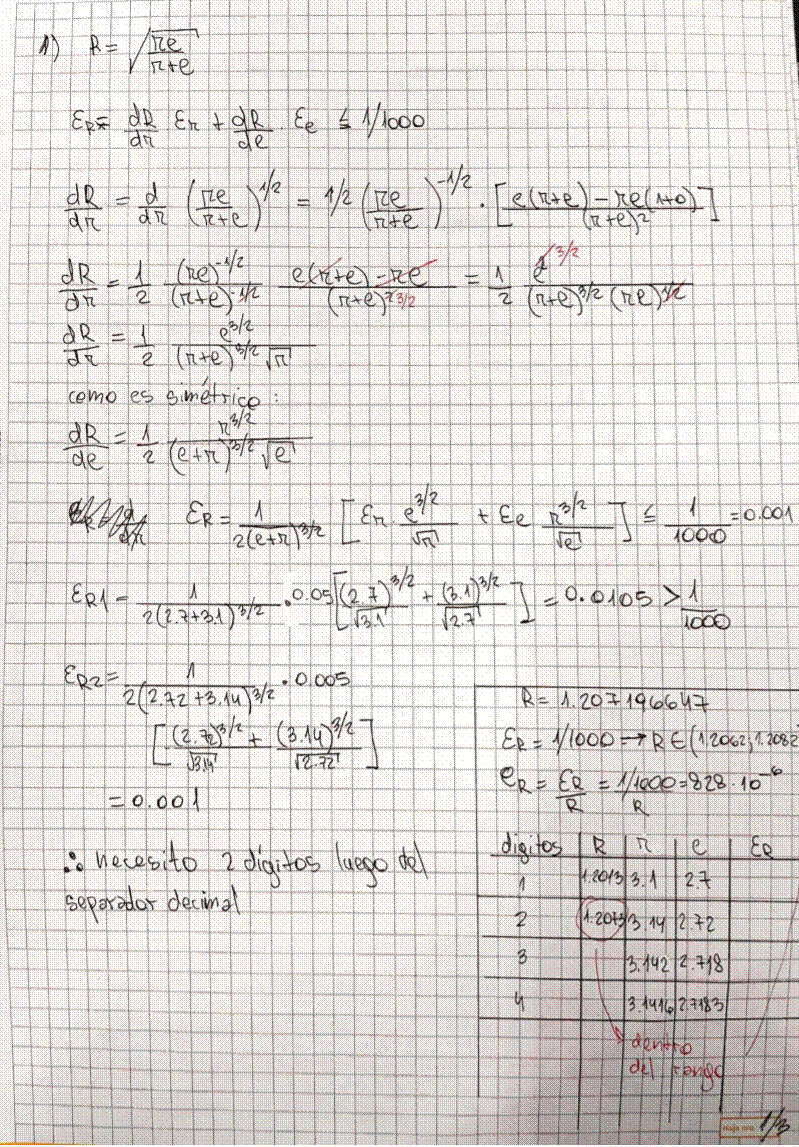 1) R = √(πe/(π+e))
εR = dR/dπ επ + dR/de · εe ≤ 1/1000
dR/dπ = d/dπ (πe/(π+e))^1/2 = 1/2 (πe/(π+e))^-1/2 · [(e(π+e) - πe(1+0))/(π+e)^2]
dR/dπ = 1/2 (πe)^-1/2/(π+e)^-1/2 (e(π+e) - πe)/(π+e)^2 3/2 = 1/2 e^2 3/2/((π+e)^3/2 (πe)^1/2)
dR/dπ = 1/2 e^3/2/((π+e)^3/2 √π)
como es simétrico:
dR/de = 1/2 π^3/2/((e+π)^3/2 √e)
εR = 1/(2(e+π)^3/2) [επ · e^3/2/√π + εe π^3/2/√e] ≤ 1/1000 = 0.001
εR1 = 1/(2(2.7+3.1)^3/2) · 0.05 [(2.7)^3/2/√3.1 + (3.1)^3/2/√2.7] = 0.0105 > 1/1000
εR2 = 1/(2(2.72+3.14)^3/2) · 0.005
[(2.72)^3/2/√3.14 + (3.14)^3/2/√2.72]
= 0.001
∴ necesito 2 dígitos luego del
separador decimal
R = 1.207196647
εR = 1/1000 → R ∈ (1.2062; 1.2082
eR = εR/R = 1/1000/R = 828 · 10^-6
dígitos R π e εR
1 1.2013 3.1 2.7
2 1.2073 3.14 2.72
3 3.142 2.718
4 3.1416 2.7183
dentro
del rango
1/3